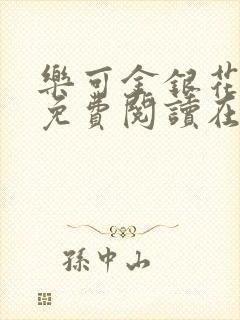 樂可金銀花
免費閱讀在
孫中山